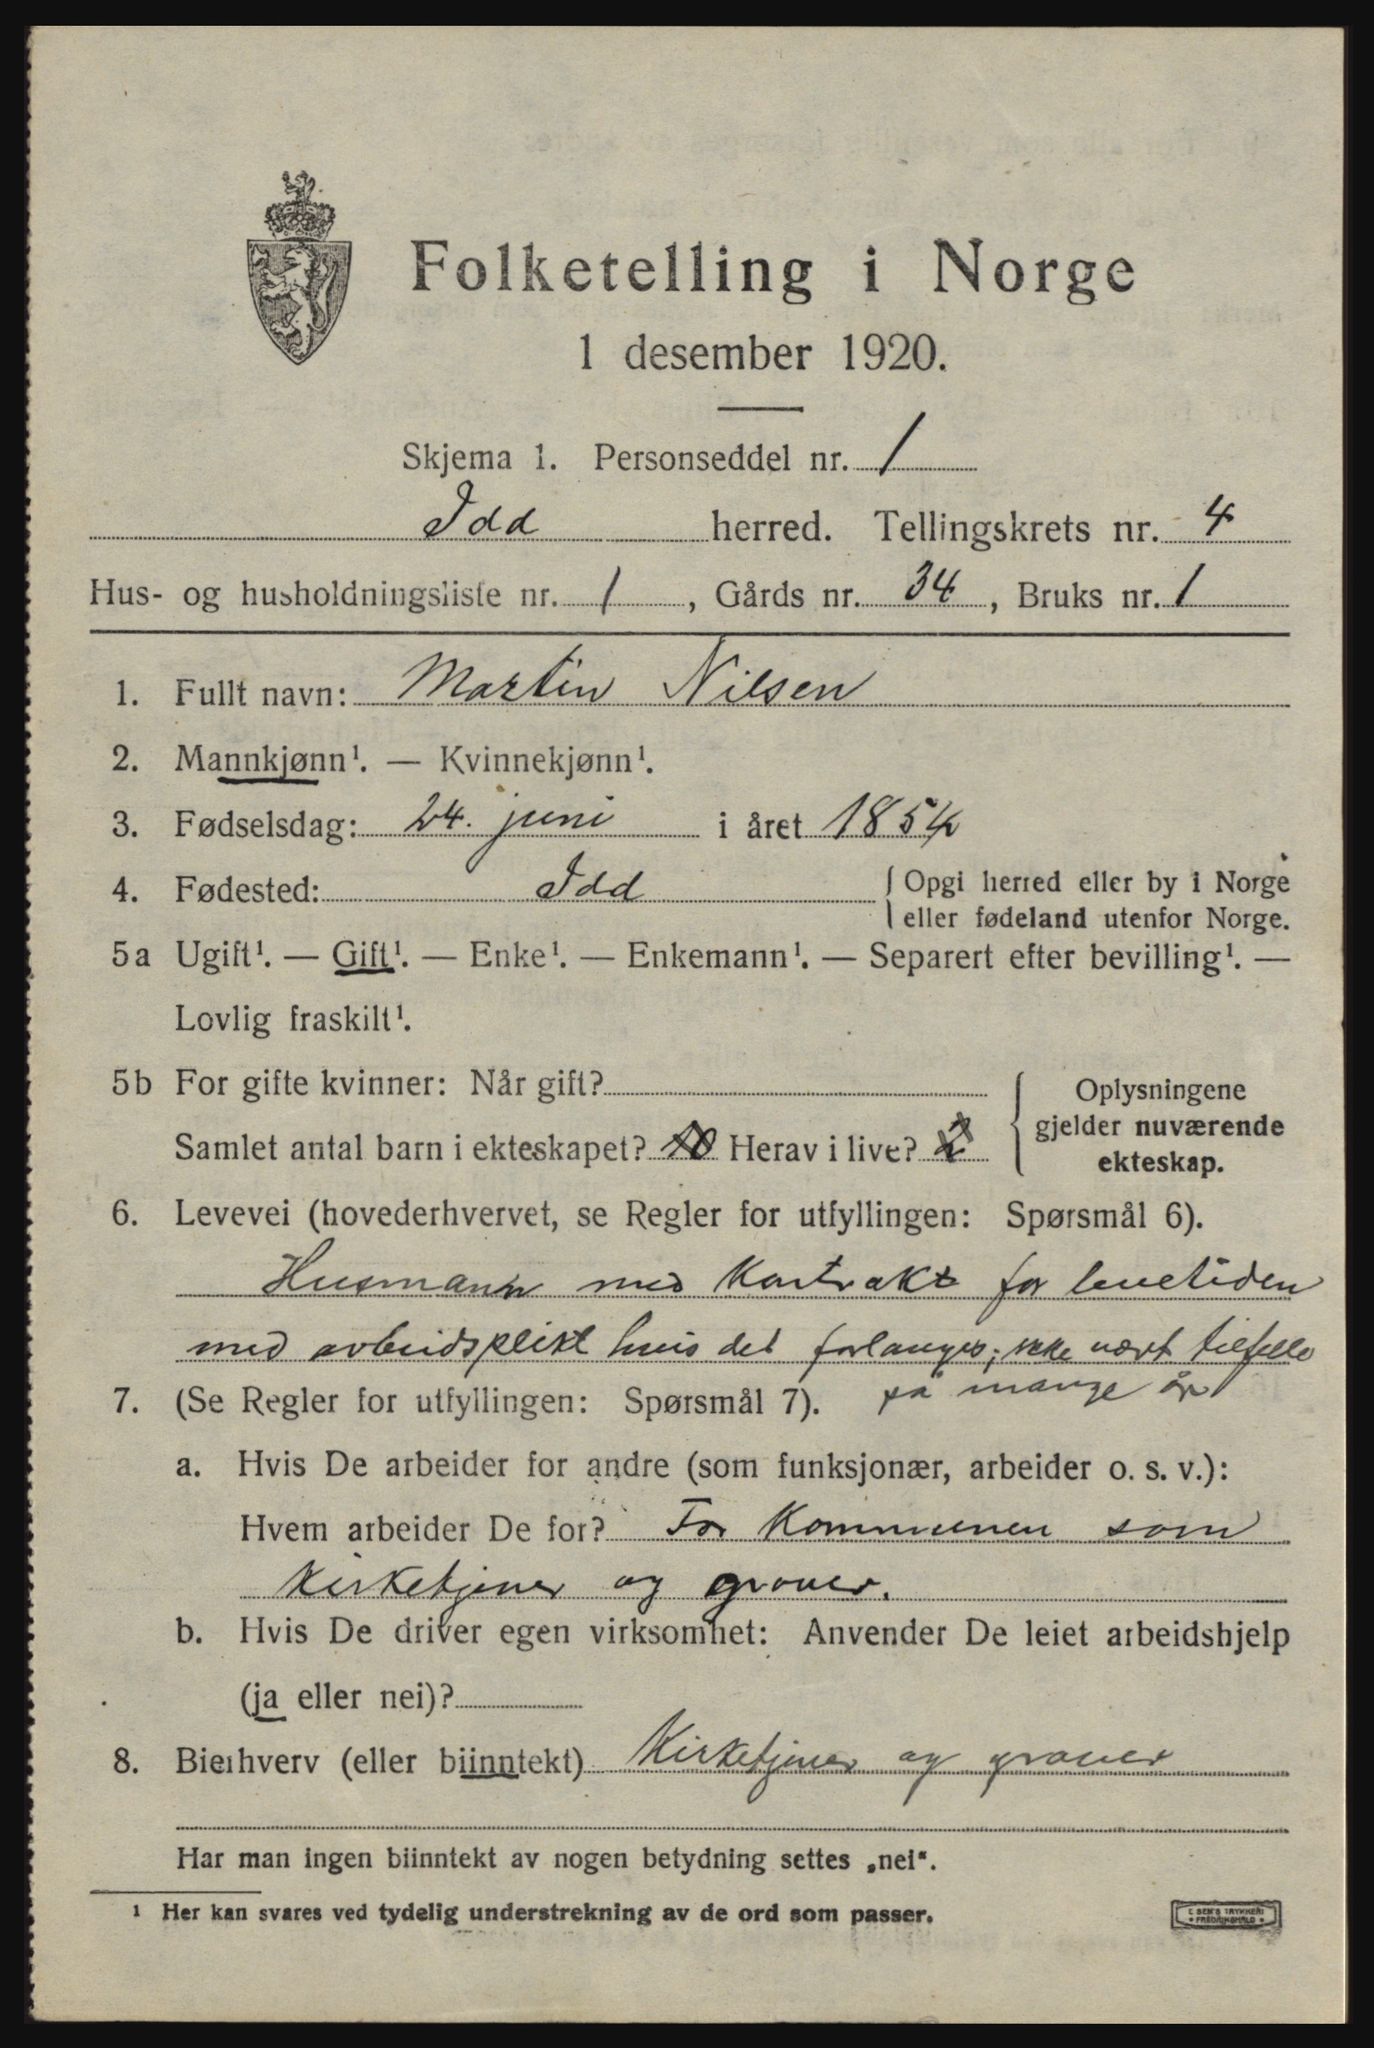 Folketelling i Norge
1 desember 1920.
Skjema 1. Personseddel nr. 1
Idd herred. Tellingskrets nr. 4
Hus- og husholdningsliste nr. 1, Gårds nr. 34, Bruks nr. 1
1. Fullt navn: Martin Nilsen
2. Mannkjønn¹. — Kvinnekjønn¹.
3. Fødselsdag: 24. juni i året 1854
4. Fødested: Idd { Opgi herred eller by i Norge
eller fødeland utenfor Norge.
5a Ugift¹. — Gift¹. — Enke¹. — Enkemann¹. — Separert efter bevilling¹. —
Lovlig fraskilt¹.
5b For gifte kvinner: Når gift? { Oplysningene
gjelder nuværende
Samlet antal barn i ekteskapet? 10 Herav i live? 2
ekteskap.
6. Levevei (hovederhvervet, se Regler for utfyllingen: Spørsmål 6).
Husmann med Kontrakt for levetiden
med arbeidsplikt hvis det forlanges; ikke vært tilfelle
på mange år
7. (Se Regler for utfyllingen: Spørsmål 7).
a. Hvis De arbeider for andre (som funksjonær, arbeider o. s. v.):
Hvem arbeider De for? For Kommunen som
Kirketjener og graver.
b. Hvis De driver egen virksomhet: Anvender De leiet arbeidshjelp
(ja eller nei)?
8. Bierhverv (eller biinntekt) Kirketjener og graver
Har man ingen biinntekt av nogen betydning settes „nei".
¹ Her kan svares ved tydelig understrekning av de ord som passer.
TRYKKERI
FREDRIKSHALD